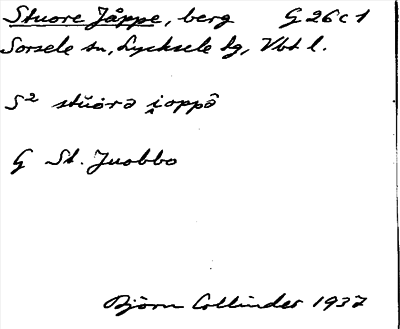 Stuore Jåppe, berg G 26 c 1
Sorsele sn, Lycksele lg, Vbt l.
S² stŭorə i̯oppə̂
G St. Juobbo
Björn Collinder 1937